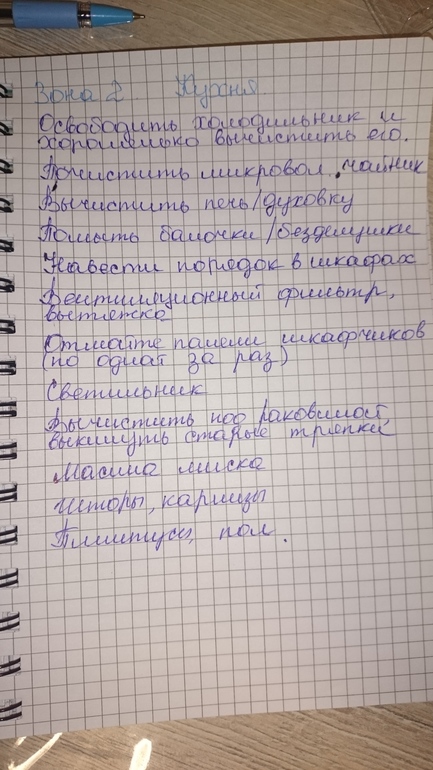 Зона 2 Кухня
Освободить холодильник и
хорошенько вычистить его.
Почистить микровол, чайник
Вычистить печь/духовку
Помыть баночки/безделушки
Навести порядок в шкафах
Вентиляционный фильтр,
вытяжка
Отмойте панели шкафчиков
(по одной за раз)
Светильник
Вычистить под раковиной,
выкинуть старые тряпки
Масина миска
Шторы, карнизы
Плинтусы, пол.